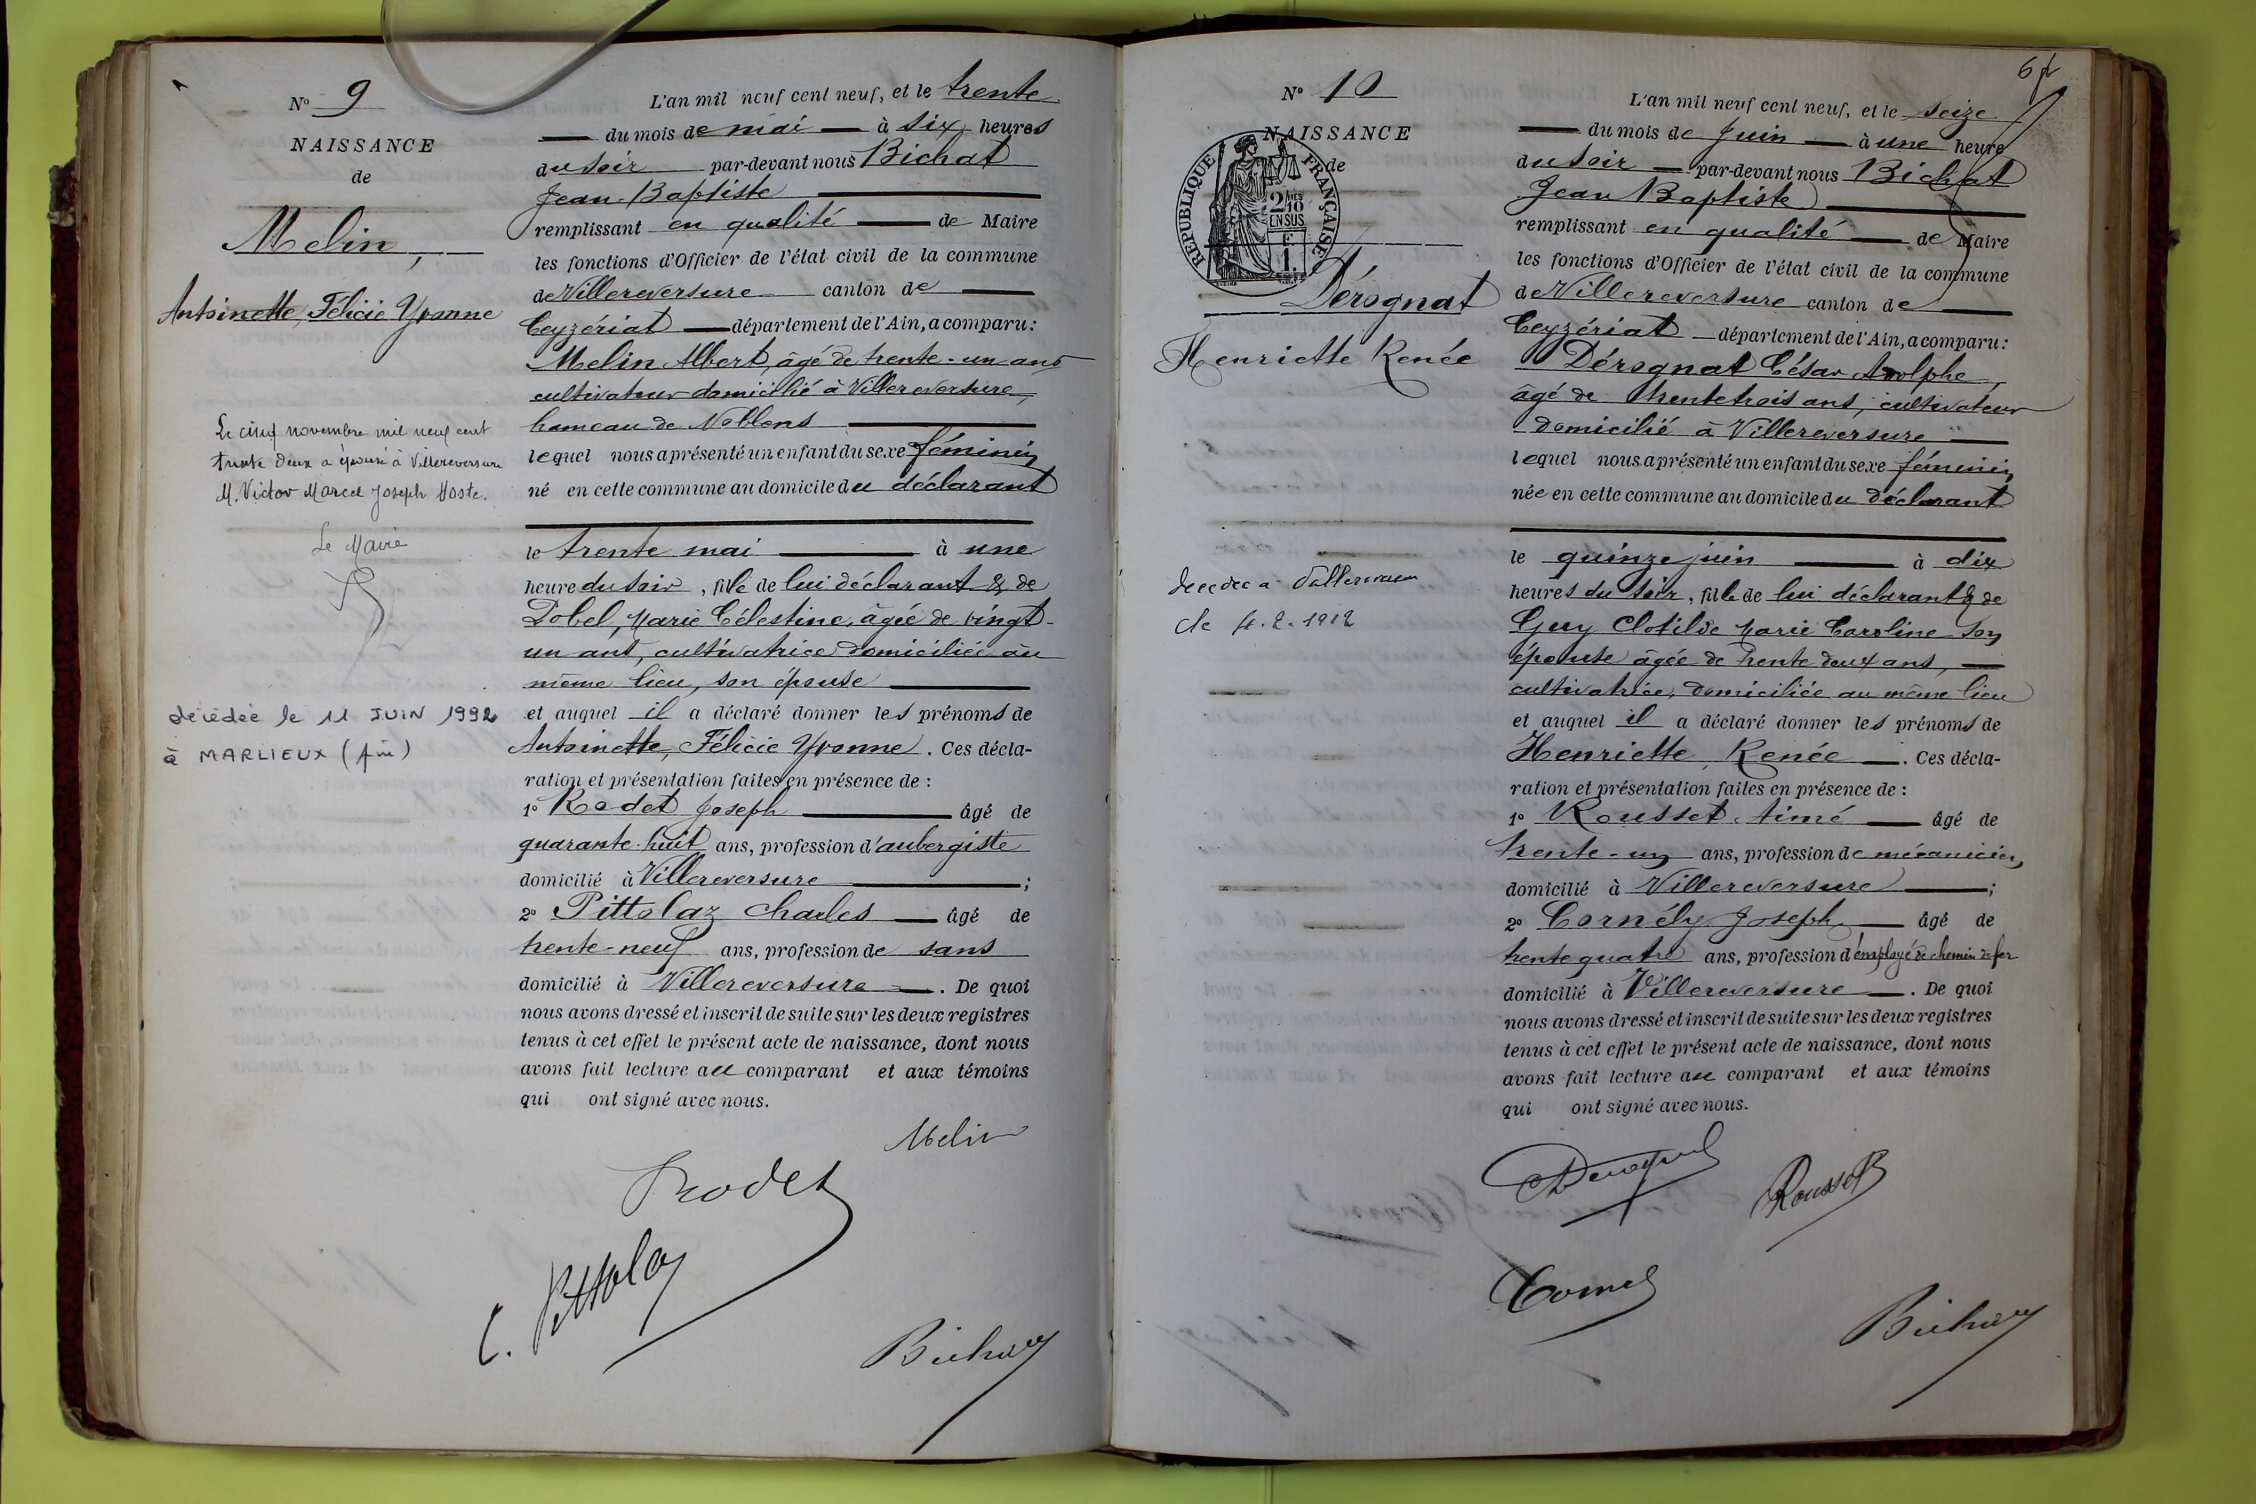 N° 9
NAISSANCE
de
Melin,
Antoinette, Félicie Yvonne
Le cinq novembre mil neuf cent
trente deux a épousé à Villereversure
M. Victor Marcel Joseph
Le Maire
décédée le 11 JUIN 1992
à MARLIEUX (Ain)
L'an mil neuf cent neuf, et le trente
du mois de mai à six heures
du soir par-devant nous Bichat
Jean-Baptiste
remplissant en qualité de Maire
les fonctions d'Officier de l'état civil de la commune
de Villereversure canton de
Ceyzériat département de l'Ain, a comparu:
Melin Albert, âgé de trente-un ans
cultivateur domicilié à Villereversure,
hameau de Noblens
lequel nous a présenté un enfant du sexe féminin
né en cette commune au domicile du déclarant
le trente mai à une
heure du soir, fille de lui déclarant & de
Dobel, Marie Célestine, âgée de vingt-
un ans, cultivatrice domiciliée au
même lieu, son épouse
et auquel il a déclaré donner les prénoms de
Antoinette, Félicie Yvonne. Ces décla-
ration et présentation faites en présence de :
1° Rodet Joseph âgé de
quarante-huit ans, profession d'aubergiste
domicilié à Villereversure ;
2° Pittolaz Charles âgé de
trente-neuf ans, profession de sans
domicilié à Villereversure. De quoi
nous avons dressé et inscrit de suite sur les deux registres
tenus à cet effet le présent acte de naissance, dont nous
avons fait lecture au comparant et aux témoins
qui ont signé avec nous.
Melin
Rodet
C. Pittolaz
Bichat
N° 10
NAISSANCE
de
RÉPUBLIQUE FRANÇAISE
2/10
EN SUS
Dérognat
Henriette Renée
décédée à Villereversure
le 4.2.1912
L'an mil neuf cent neuf, et le seize
du mois de Juin à une heure
du soir par-devant nous Bichat
Jean Baptiste
remplissant en qualité de Maire
les fonctions d'Officier de l'état civil de la commune
de Villereversure canton de
Ceyzériat département de l'Ain, a comparu:
Dérognat César Adolphe,
âgé de trente trois ans, cultivateur
domicilié à Villereversure
lequel nous a présenté un enfant du sexe féminin
née en cette commune au domicile du déclarant
le quinze juin à dix
heures du soir, fille de lui déclarant & de
Guy Clotilde Marie Caroline son
épouse âgée de trente deux ans,
cultivatrice, domiciliée au même lieu
et auquel il a déclaré donner les prénoms de
Henriette, Renée. Ces décla-
ration et présentation faites en présence de :
1° Rousset Aimé âgé de
trente-un ans, profession de mécanicien,
domicilié à Villereversure ;
2° Cornély Joseph âgé de
trente quatre ans, profession d'employé de chemin de fer
domicilié à Villereversure. De quoi
nous avons dressé et inscrit de suite sur les deux registres
tenus à cet effet le présent acte de naissance, dont nous
avons fait lecture au comparant et aux témoins
qui ont signé avec nous.
Rousset
Bichat